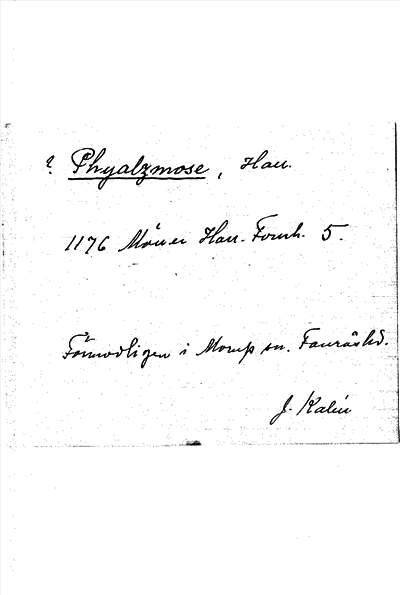 ? Phyalzmose, Hall.
1176 Möller Hall. Fornh. 5.
Förmodligen i Morup sn. Faurås hd.
J. Kalén